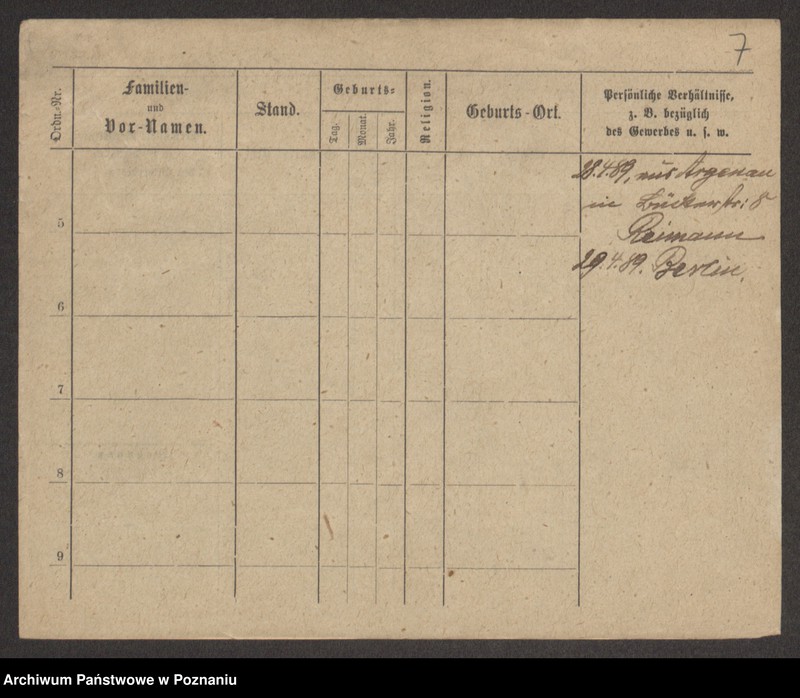 7
Ordn.-Nr.
Familien-
und
Vor-Namen.
Stand.
Geburts-
Tag.
Monat.
Jahr.
Religion.
Geburts-Ort.
Persönliche Verhältnisse,
z. B. bezüglich
des Gewerbes u. s. w.
28.4.89, aus Argenau
in Bäckerstr: 8
Reimann
29.4.89. Berlin.
5
6
7
8
9
Archiwum Państwowe w Poznaniu